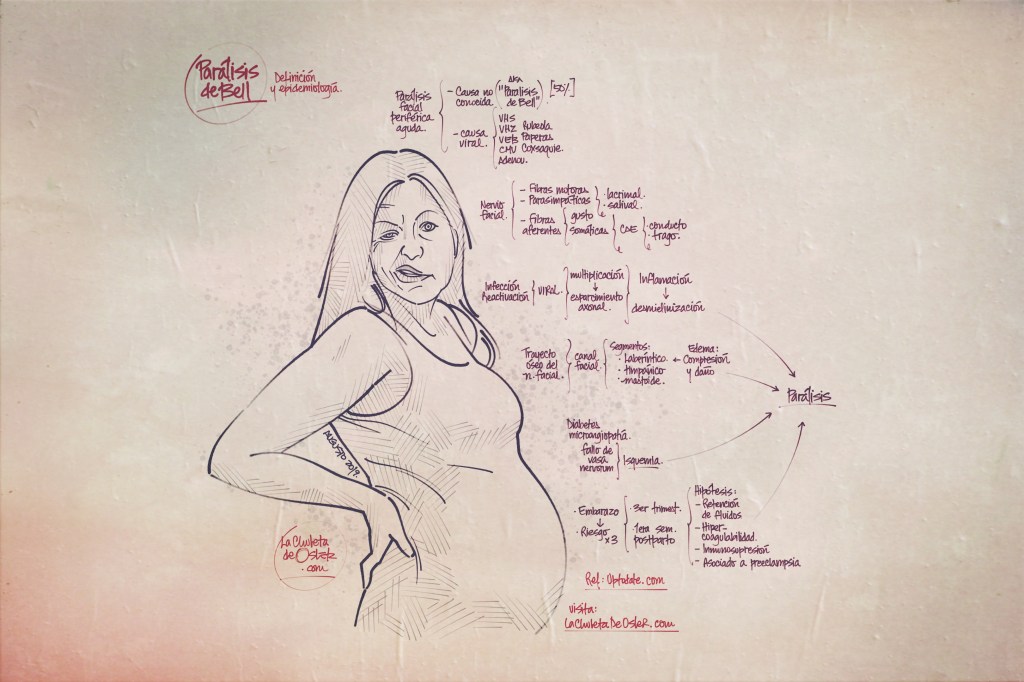 Parálisis
de Bell
Definición
y epidemiología.
Parálisis
facial
periférica
aguda.
- Causa no
conocida
AKA
("Parálisis
de Bell")
[50%]
- causa
viral.
VHS
VHZ Rubeola
VEB Paperas
CMV Coxsaquie.
Adenov.
Nervio
facial.
- Fibras motoras
- Parasimpáticas
· lacrimal.
· salival.
- Fibras
aferentes
gusto
somáticas
CAE
· conducto
· trago.
Infección
Reactivación
VIRAL
multiplicación
↓
esparcimiento
axonal.
Inflamación
↓
desmielinización
Trayecto
óseo del
n. facial.
canal
facial.
Segmentos:
· Laberíntico.
· timpánico
· mastoide.
← Edema:
Compresión
y daño
Parálisis
Diabetes
microangiopatía.
fallo de
vasa
nervorum
Isquemia.
· Embarazo
↓
· Riesgo x3
· 3er trimest.
· 1era sem.
postparto
Hipótesis:
- Retención
de fluidos
- Hiper-
coagulabilidad.
- Inmunosupresión
- Asociado a preeclampsia
2019.
La Chuleta
de Osler
.com
Ref: Uptodate.com
visita:
LaChuletaDeOsler.com